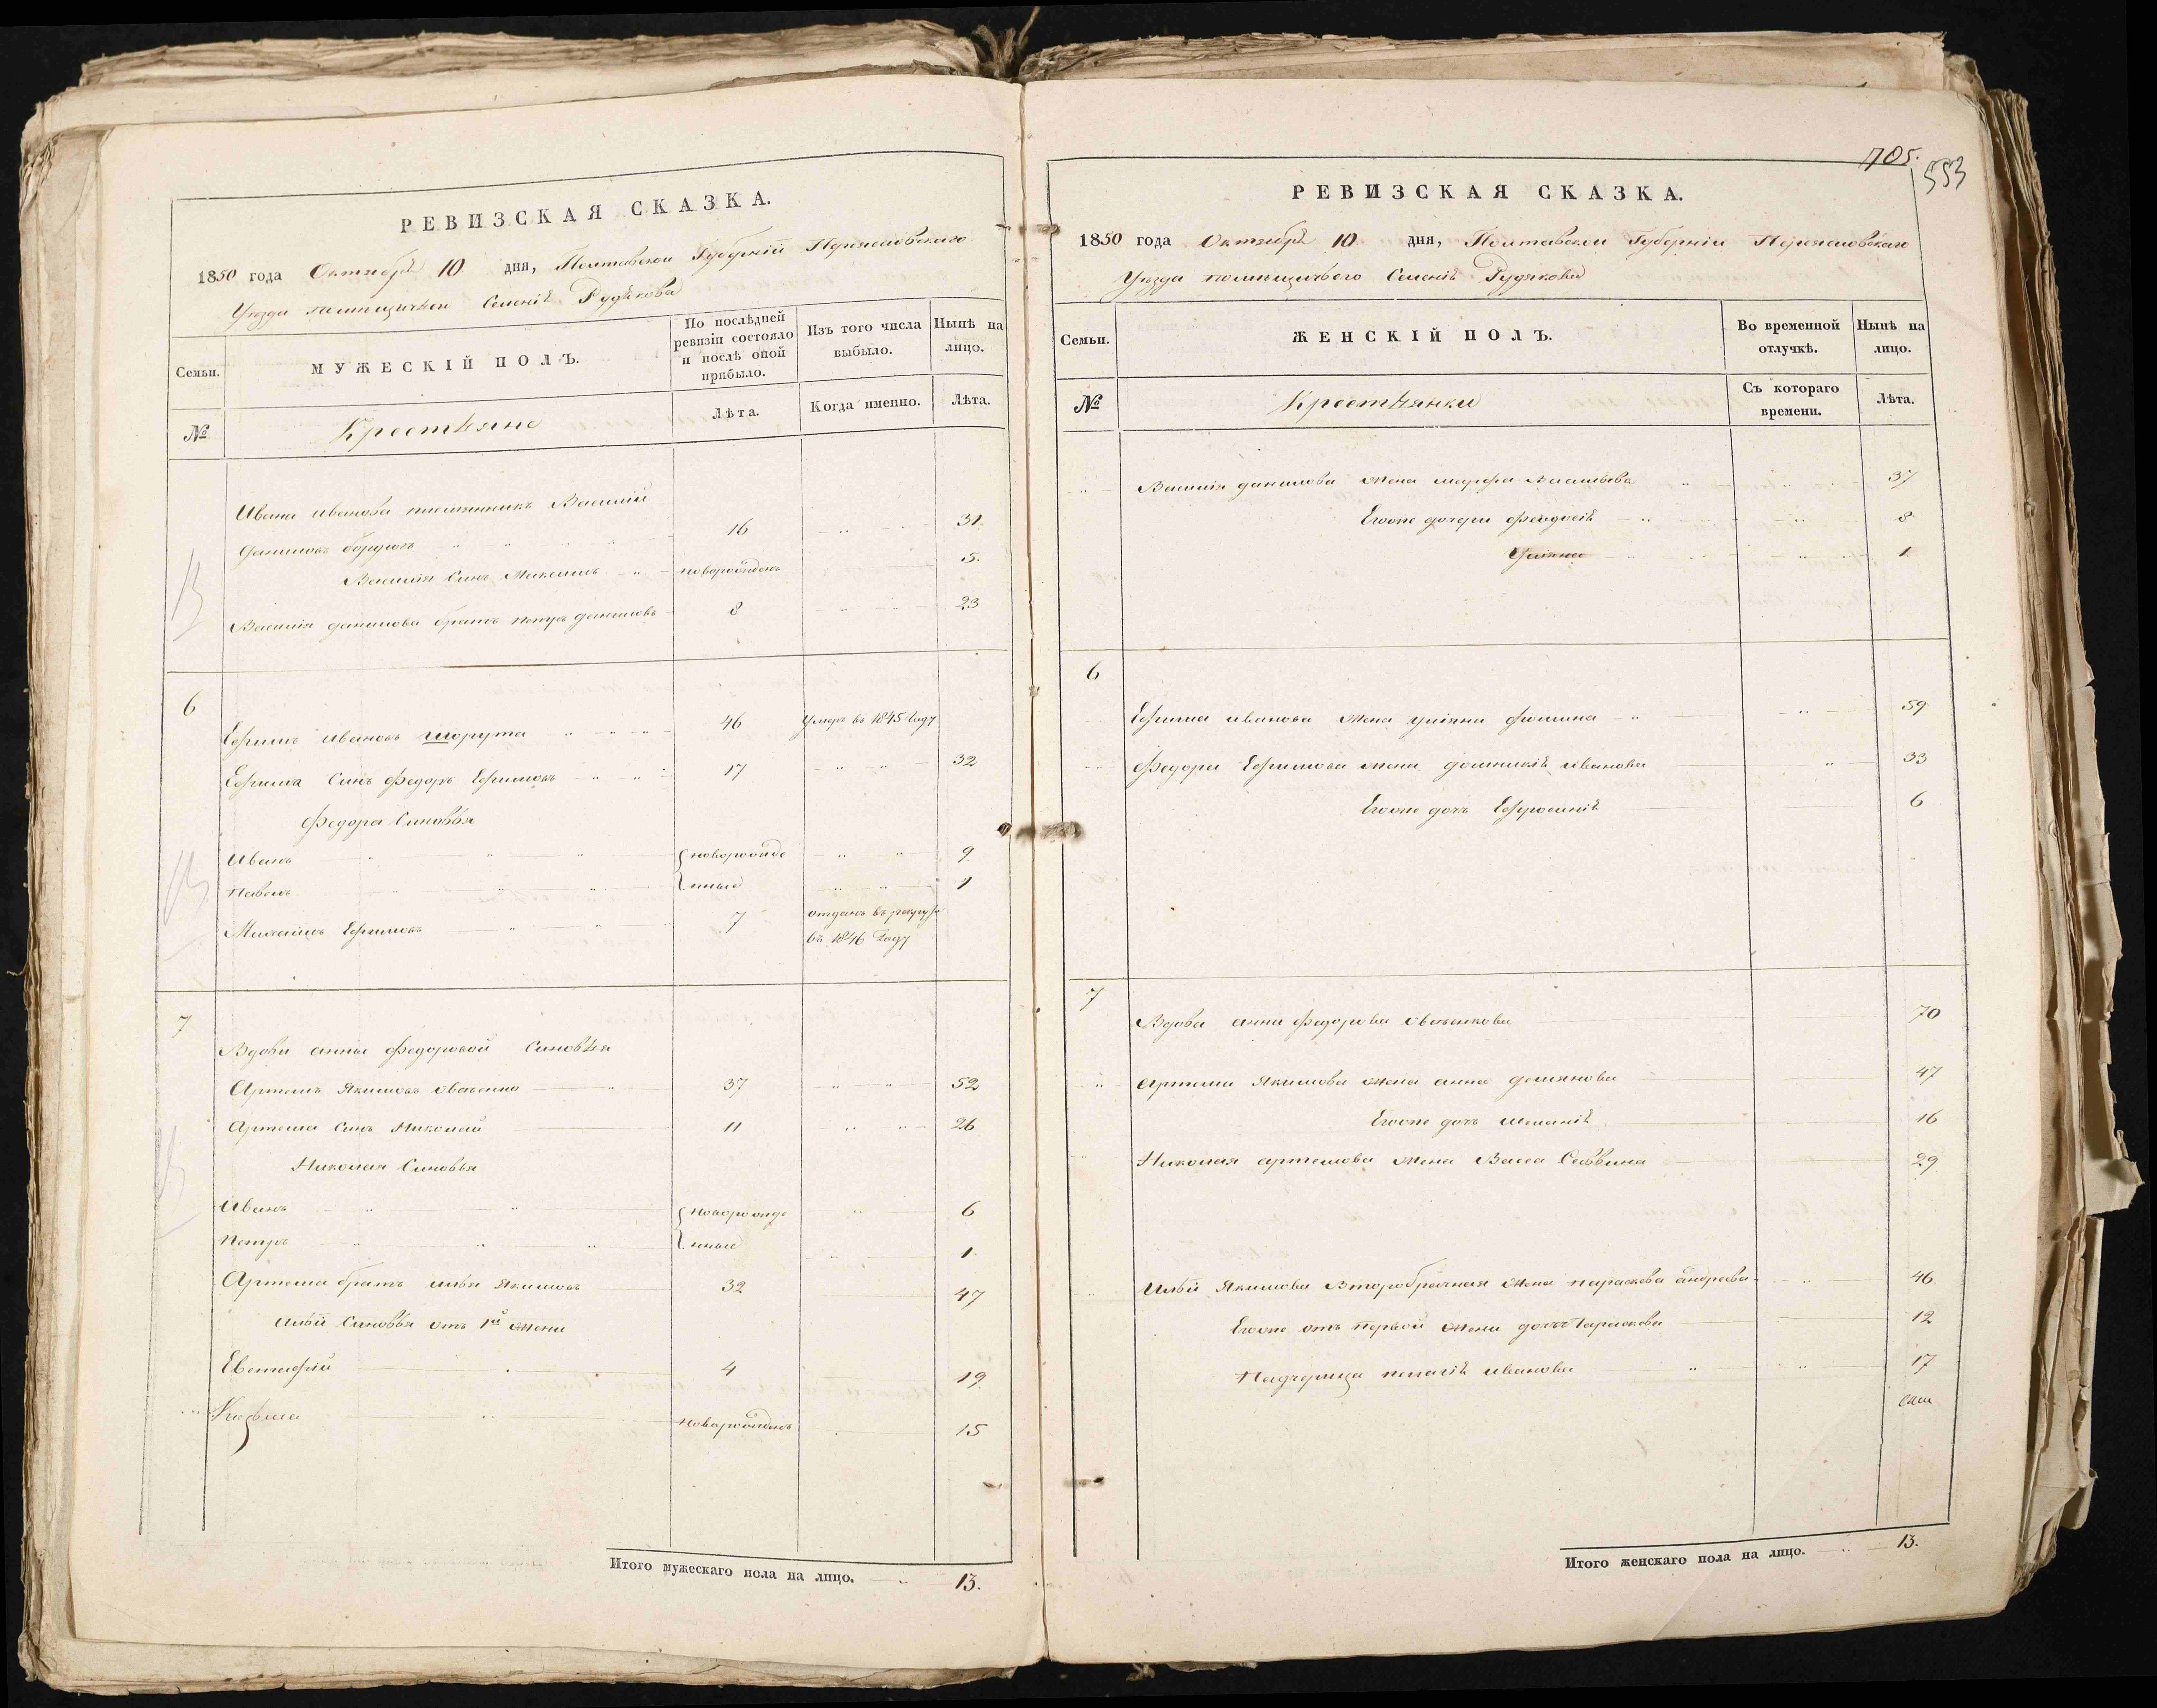 РЕВИЗСКАЯ СКАЗКА.
1850 года Октября 10 дня, Полтавской Губернии Переясловскаго
Уезда помещичьей Селенiя Рудякова
Семьи.
МУЖЕСКІЙ ПОЛЪ.
По послѣдней ревизіи состояло и послѣ оной прибыло.
Изъ того числа выбыло.
Нынѣ на лицо.
№
Крестьяне
Лѣта.
Когда именно.
Лѣта.
Ивана Иванова племянникъ Василій
Даниловъ 16 31.
Василія Сынъ Максимъ новорожденъ 5.
Василія данилова братъ петръ даниловъ 8 23
6
Ефимъ Ивановъ Шорута 46 умеръ въ 1845 Году
Ефима Сынъ Федоръ Ефимовъ 17 32
Федора Сыновья
Иванъ новорожде 9
Павелъ нные 1
Михайло Ефимовъ 7 отданъ въ рекруты
въ 1846 Году
7
Вдовы анны Федоровой Сыновья
Артемъ Якимовъ 37 52
Артема Сынъ Николай 11 26
Николая Сыновья
Иванъ новорожде 6
Петръ нные 1
Артема братъ илья Якимовъ 32 47
Ильи Сыновья отъ 1й жены
Евстафій 4 19
Козьма новорожденъ 15
Итого мужескаго пола на лицо. 13.
705.
553
РЕВИЗСКАЯ СКАЗКА.
1850 года Октября 10 дня, Полтавской Губерніи Переясловскаго
Уезда помещичьего Селенія Рудякова
Семьи.
ЖЕНСКІЙ ПОЛЪ.
Во временной отлучкѣ.
Нынѣ на лицо.
№
Крестьянки
Съ котораго времени.
Лѣта.
Василія данилова жена марфа Васильева 37
Егоже дочери феодосія 8
Уліяна 1
6
Ефима иванова жена уліяна фомина 59
Федора Ефимова жена домникія иванова 33
Егоже дочь Ефросинія 6
7
Вдова анна Федорова 70
Артема Якимова жена анна демянова 47
Егоже дочь меланія 16
Николая артемова жена Васса Саввина 29
Ильи Якимова Второбрачная жена параскева андреева 46.
Егоже отъ первой жены дочь Параскева 12
Падчерица пелагія иванова 17
Итого женскаго пола на лицо. 13.